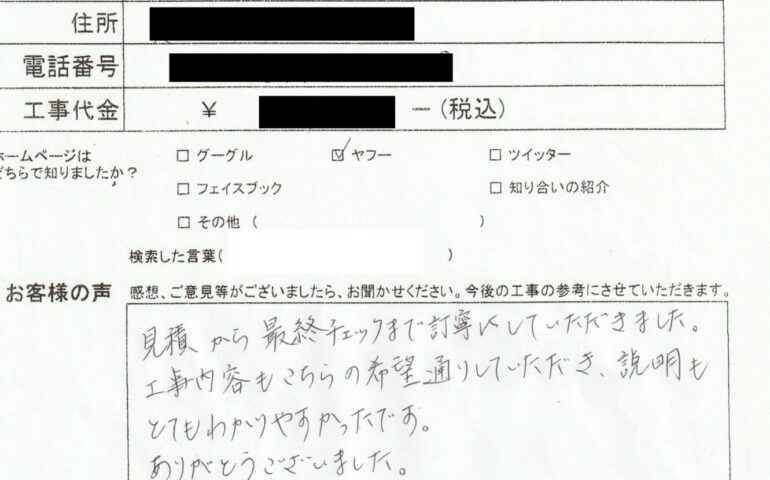 住所
電話番号
工事代金 ¥ ー(税込)
ホームページは □ グーグル ☑ ヤフー □ ツイッター
どちらで知りましたか? □ フェイスブック □ 知り合いの紹介
□ その他 ( )
検索した言葉( )
お客様の声 感想、ご意見等がございましたら、お聞かせください。今後の工事の参考にさせていただきます。
見積から最終チェックまで訂寧にしていただきました。
工事内容もこちらの希望通りしていただき、説明も
とてもわかりやすかったです。
ありがとうございました。